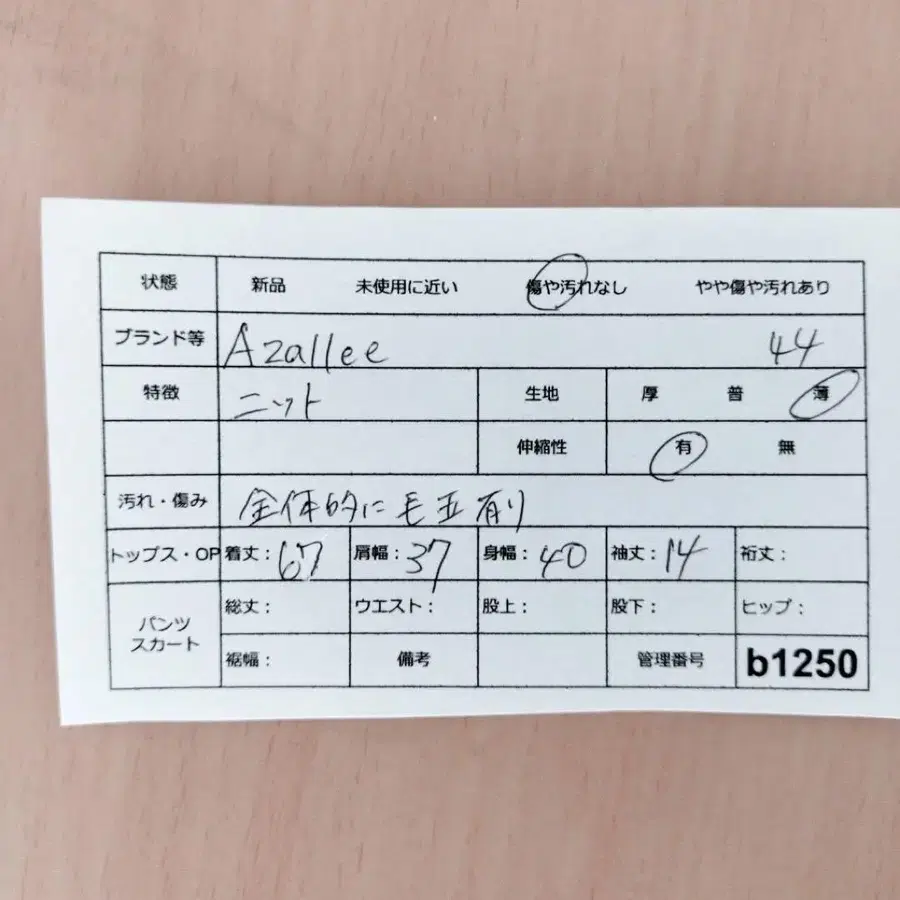 状態 新品 未使用に近い 傷や汚れなし やや傷や汚れあり
ブランド等 Azallee 44
特徴 ニット 生地 厚 普 薄
伸縮性 有 無
汚れ・傷み 全体的に毛玉有り
トップス・OP 着丈：67 肩幅：37 身幅：40 袖丈：14 裄丈：
パンツ スカート 総丈： ウエスト： 股上： 股下： ヒップ：
裾幅： 備考 管理番号 b1250